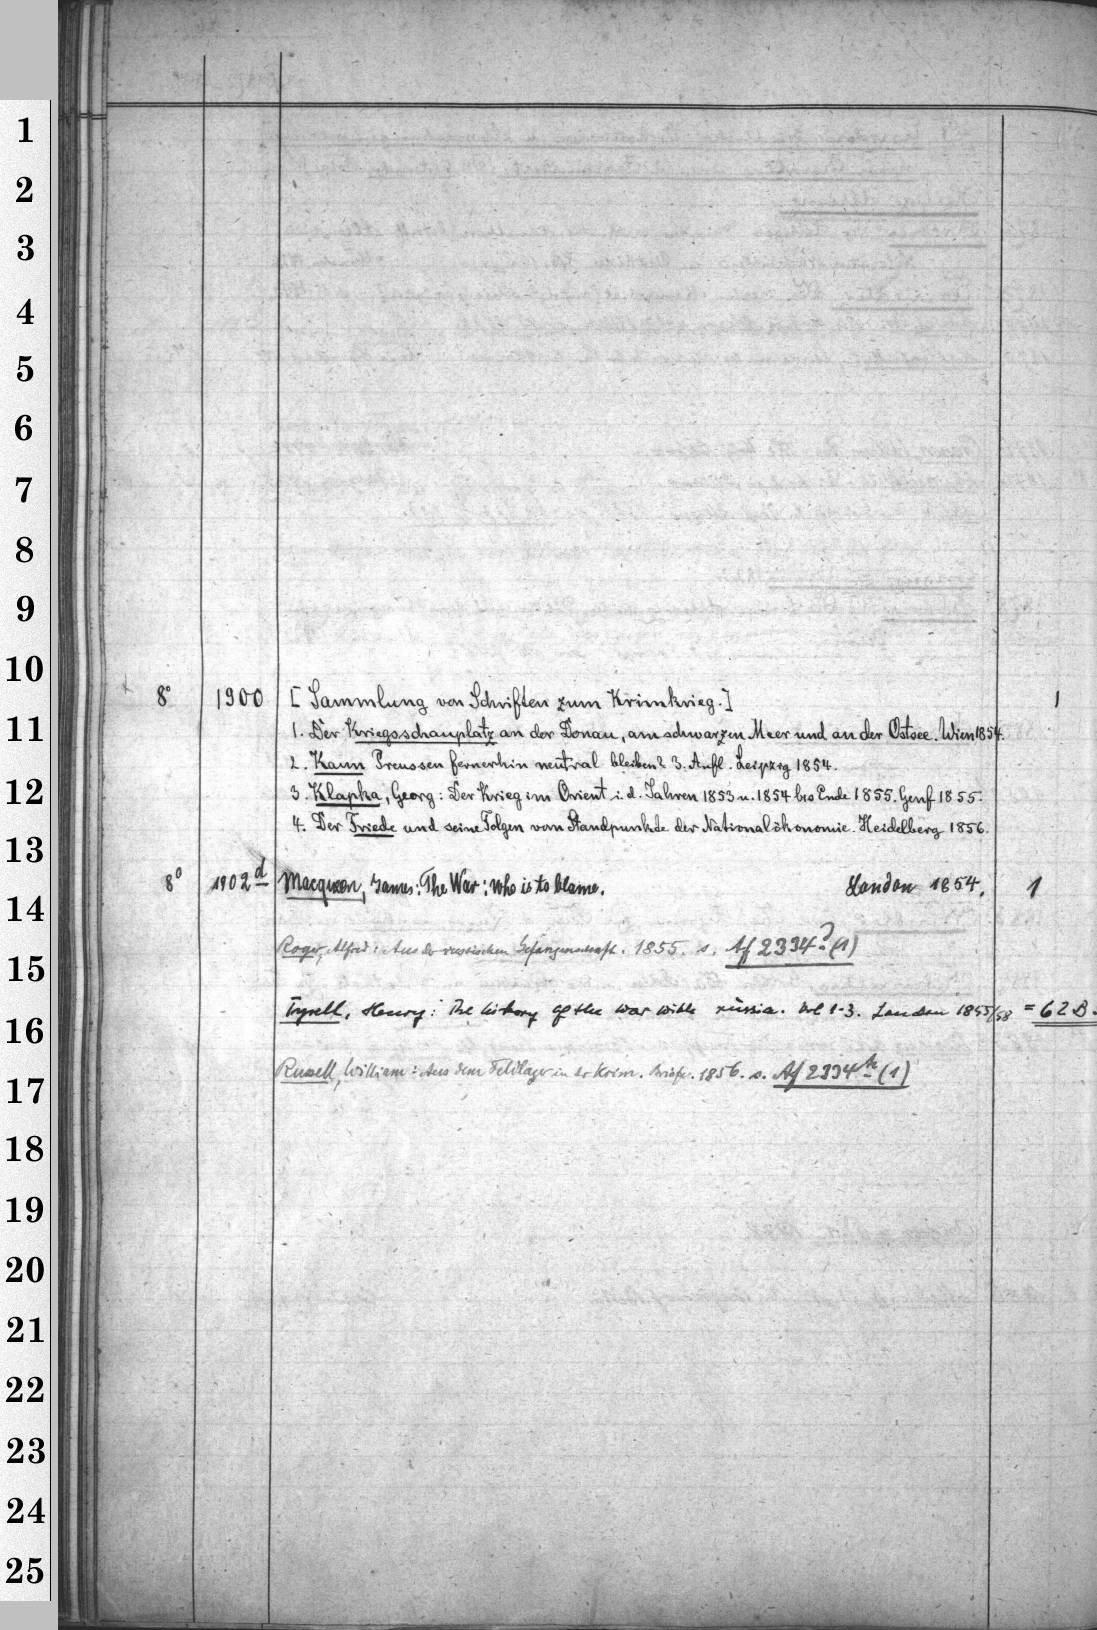 1
2
3
4
5
6
7
8
9
10
8° 1900 [Sammlung von Schriften zum Krimkrieg.] 1
11
1. Der Kriegsschauplatz an der Donau, am schwarzen Meer und an der Ostsee. Wien 1854.
2. Kann Preussen fernerhin neutral bleiben? 3. Aufl. Leipzig 1854.
12
3. Klapka, Georg: Der Krieg im Orient i. d. Jahren 1853 u. 1854 bis Ende 1855. Genf 1855.
4. Der Friede und seine Folgen vom Standpunkte der Nationalökonomie. Heidelberg 1856.
13
8° 1902 d Macqueen, James: The War: who is to blame. London 1854. 1
14
Royer, Alfred: Aus der russischen Gefangenschaft. 1855. s. Af 2334 (1)
15
Tyrell, Henry: The history of the war with russia. Vol 1-3. London 1855/58 = 62 B.
16
Russell, William: Aus dem Feldlager in der Krim. Briefe. 1856. s. Af 2334 (1)
17
18
19
20
21
22
23
24
25